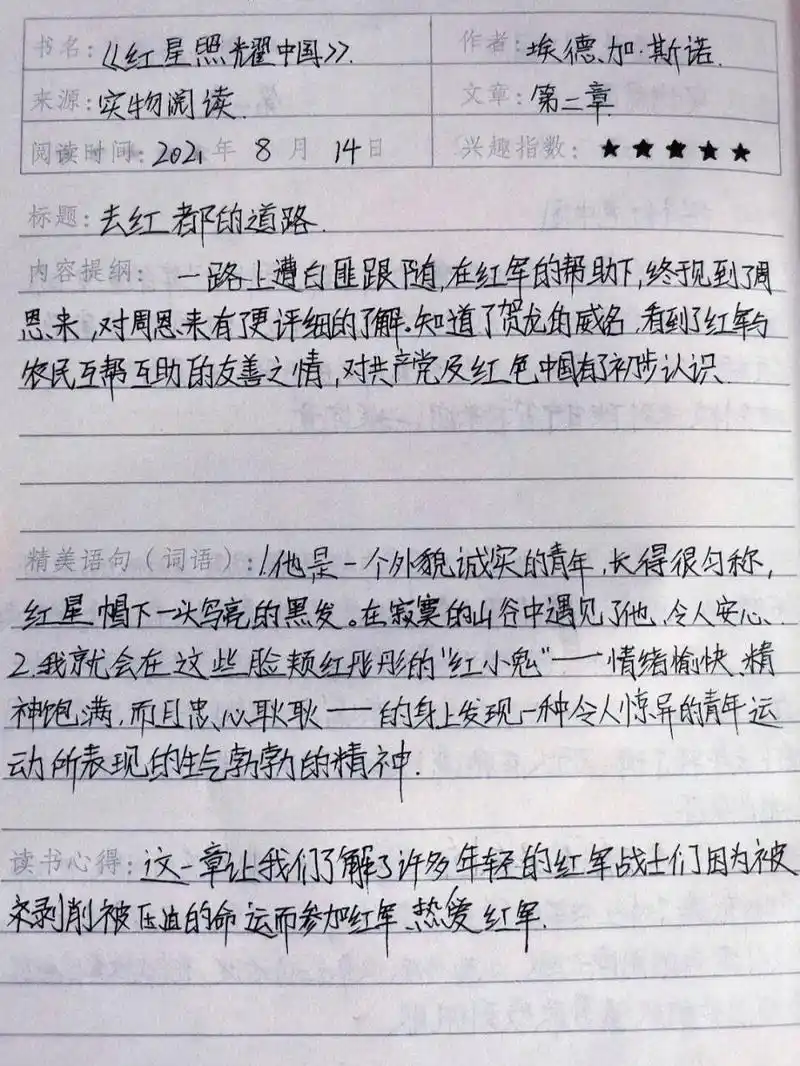 书名：《红星照耀中国》. 作者：埃德加·斯诺.
来源：实物阅读. 文章：第二章
阅读时间：2021年8月14日 兴趣指数：★★★★★
标题：去红都的道路.
内容提纲：一路上遭白匪跟随,在红军的帮助下,终于见到了周
恩来,对周恩来有了更详细的了解.知道了贺龙的威名,看到了红军与
农民互帮互助的友善之情,对共产党及红色中国有了初步认识.
精美语句（词语）：1.他是一个外貌诚实的青年,长得很匀称,
红星帽下一头乌亮的黑发。在寂寞的山谷中遇见了他,令人安心、
2.我就会在这些脸颊红彤彤的"红小鬼"——情绪愉快、精
神饱满,而且忠心耿耿——的身上发现一种令人惊异的青年运
动所表现的生气勃勃的精神.
读书心得：这一章让我们了解了许多年轻的红军战士们因为被
剥削被压迫的命运而参加红军、热爱红军.